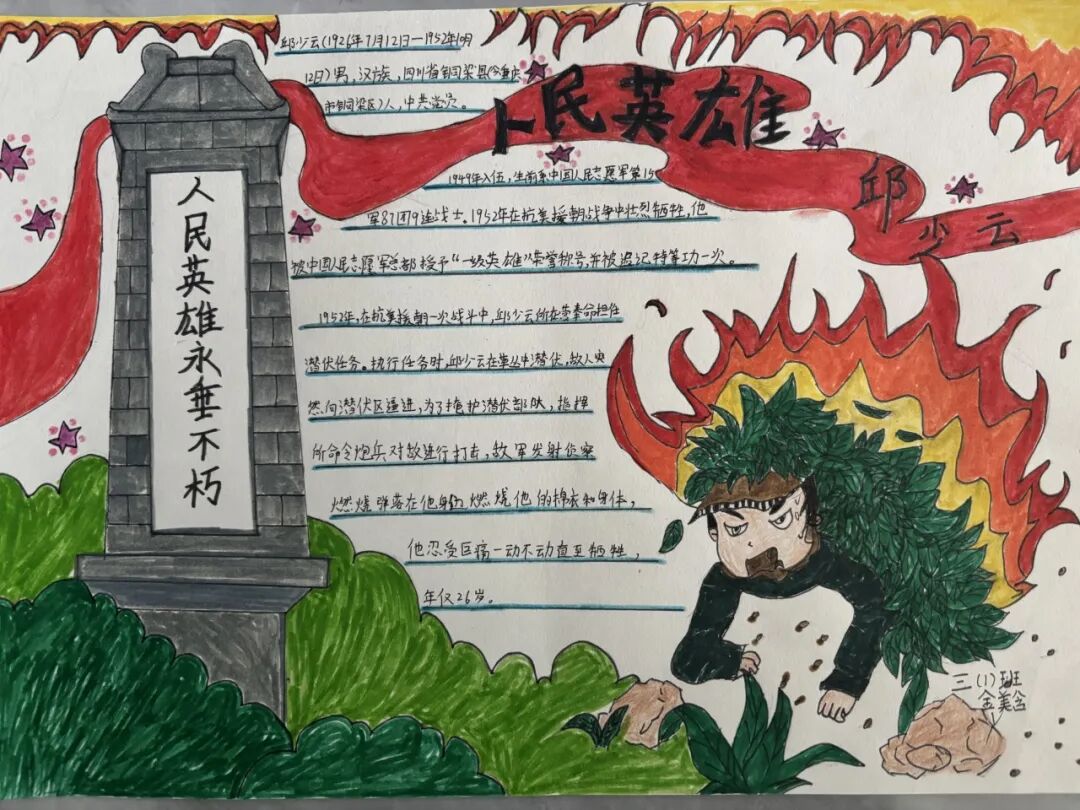 人民英雄永垂不朽
邱少云(1926年7月12日—1952年10月
12日)男,汉族,四川省铜梁县(今重庆
市铜梁区)人,中共党员。
人民英雄
邱少云
1949年入伍,生前系中国人民志愿军第15
军87团9连战士。1952年在抗美援朝战争中壮烈牺牲,他
被中国人民志愿军总部授予“一级英雄”荣誉称号,并被追记特等功一次。
1952年,在抗美援朝一次战斗中,邱少云所在营奉命担任
潜伏任务。执行任务时,邱少云在草丛中潜伏,敌人突
然向潜伏区逼进,为了掩护潜伏部队,指挥
所命令炮兵对敌进行打击,敌军发射侦察
燃烧弹落在他身边燃烧他的棉衣和身体,
他忍受巨痛一动不动直至牺牲,
年仅26岁。
三(1)班
金美含